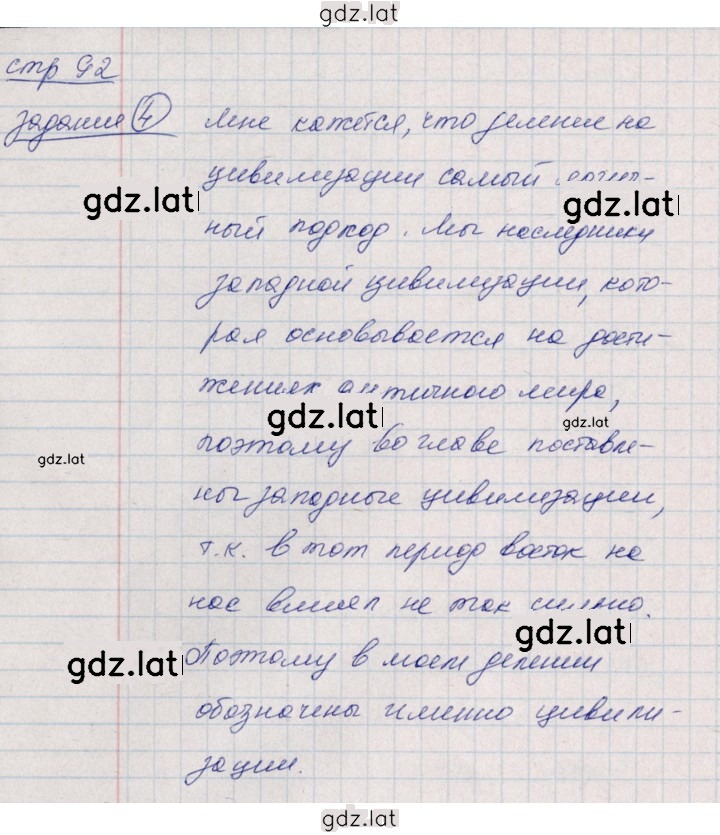 gdz.lat
стр 92
задание 4 Мне кажется, что деление на
цивилизации самый
gdz.lat
gdz.lat
ный подход. Мы наследники
западной цивилизации, кото-
рая основывается на дости-
жениях античного мира,
gdz.lat
gdz.lat
поэтому во главе поставле-
gdz.lat
ны западные цивилизации,
т.к. в тот период восток на
нас влиял не так сильно.
gdz.lat
gdz.lat
Поэтому в моем делении
обозначены именно цивили-
зации.
gdz.lat